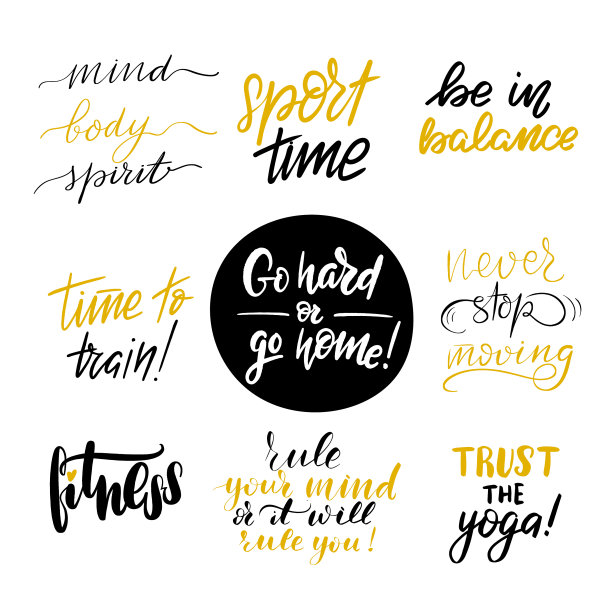 mind
body
spirit
sport
time
be in
balance
time to
train!
Go hard
or
go home!
never
stop
moving
fitness
rule
your mind
or it will
rule you!
TRUST
THE
yoga!